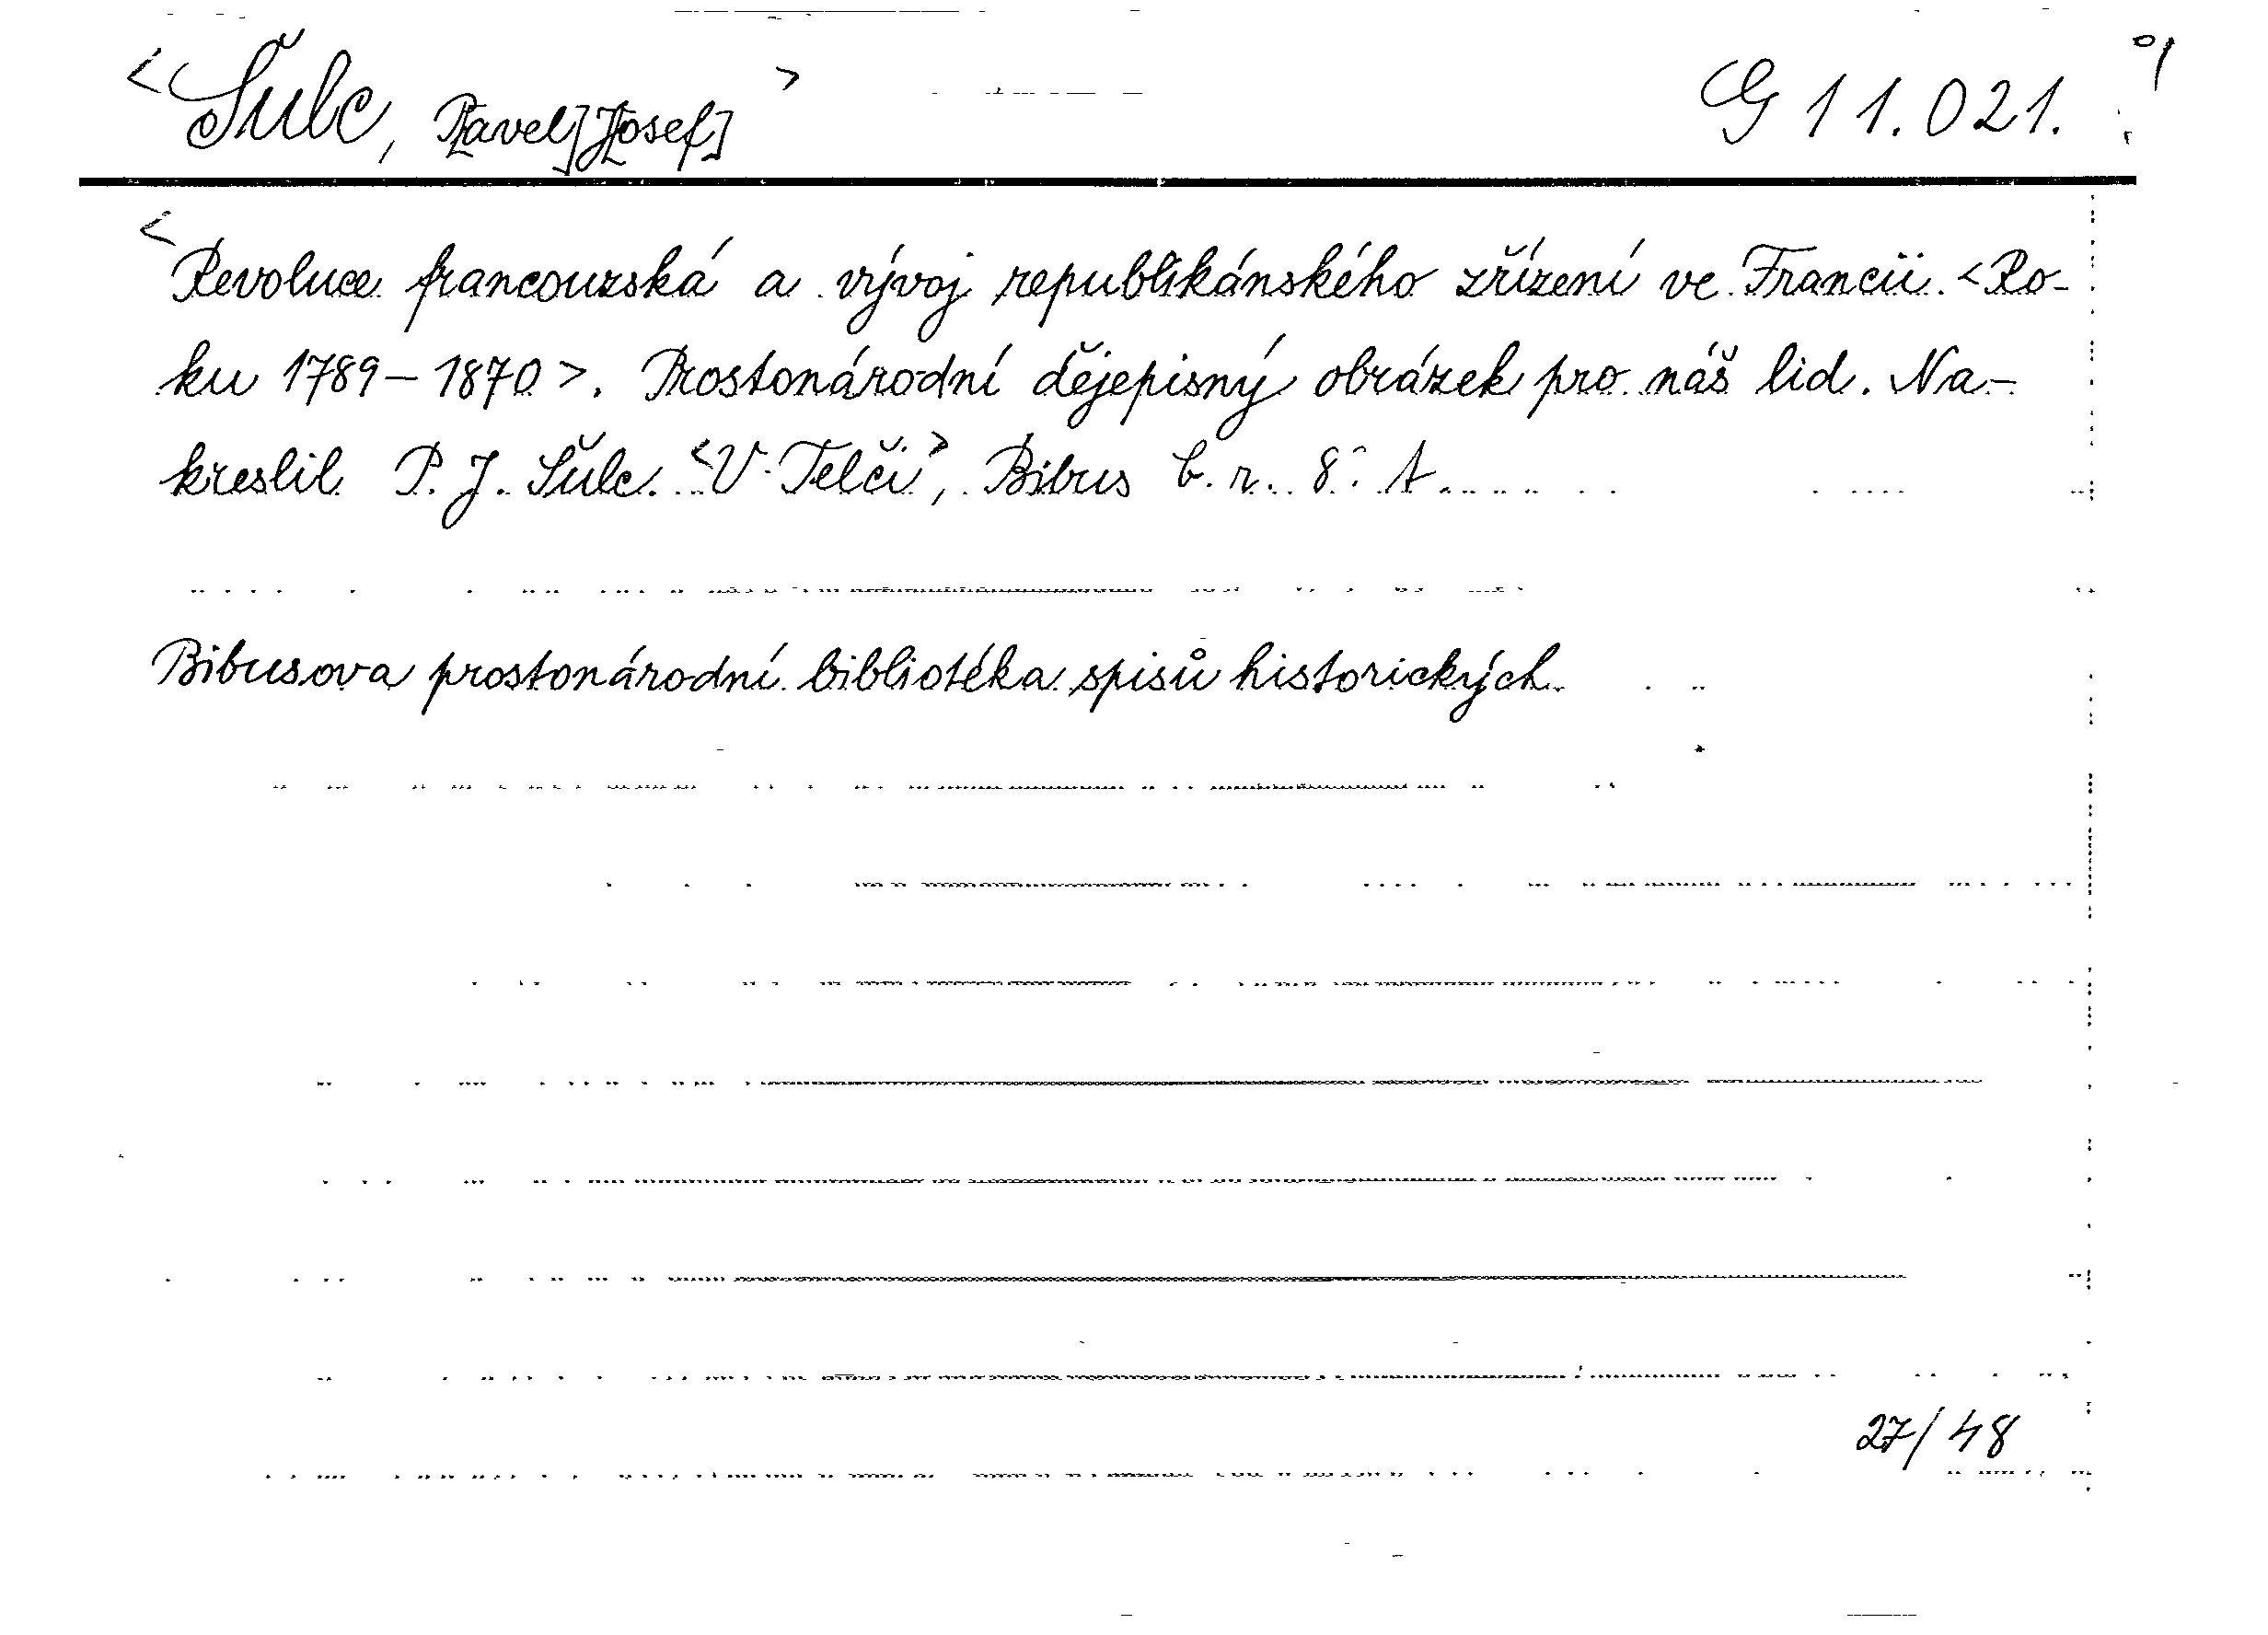 <Šulc, P[avel] J[osef]> G 11.021.
<Revoluce francouzská a vývoj republikánského zřízení ve Francii. <Ro-
ku 1789–1870>. Prostonárodní dějepisný obrázek pro náš lid. Na-
kreslil P. J. Šulc. <V Telči>, Bibus b. r. 8° A
Bibusova prostonárodní bibliotéka spisů historických
27/48